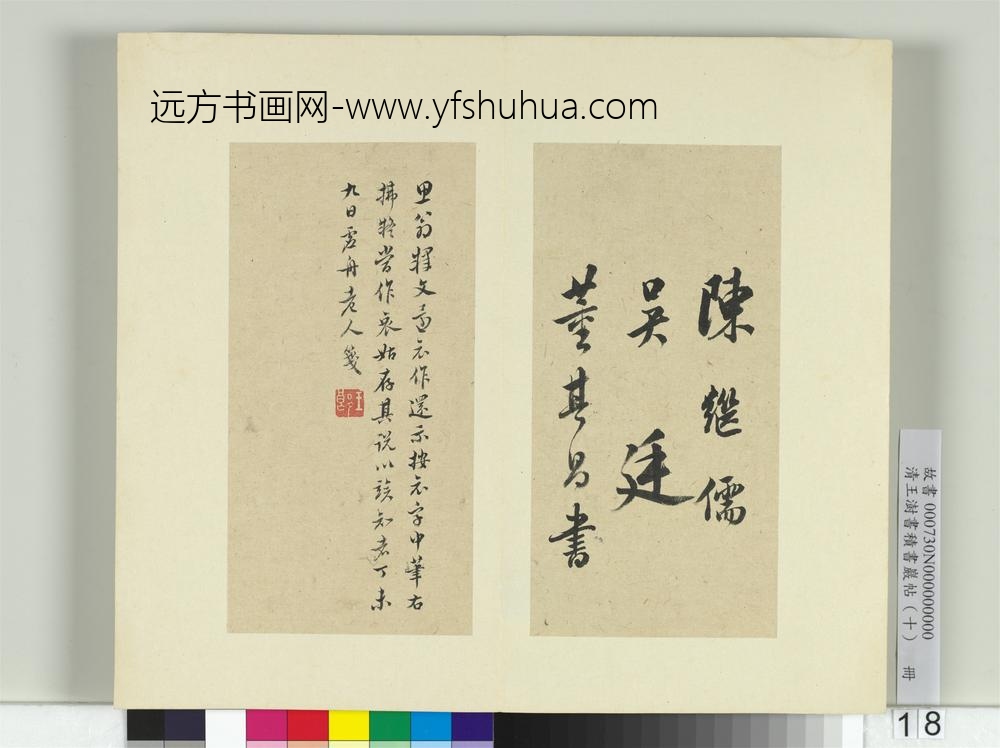 远方书画网-www.yfshuhua.com
陳繼儒
吳廷
董其昌書
思翁釋文還示作還示按示字中筆右
拂疑當作衷姑存其說以諗知者丁未
九日虛舟老人箋
故書 000730N000000000
清王澍書積書巖帖(十) 冊
18